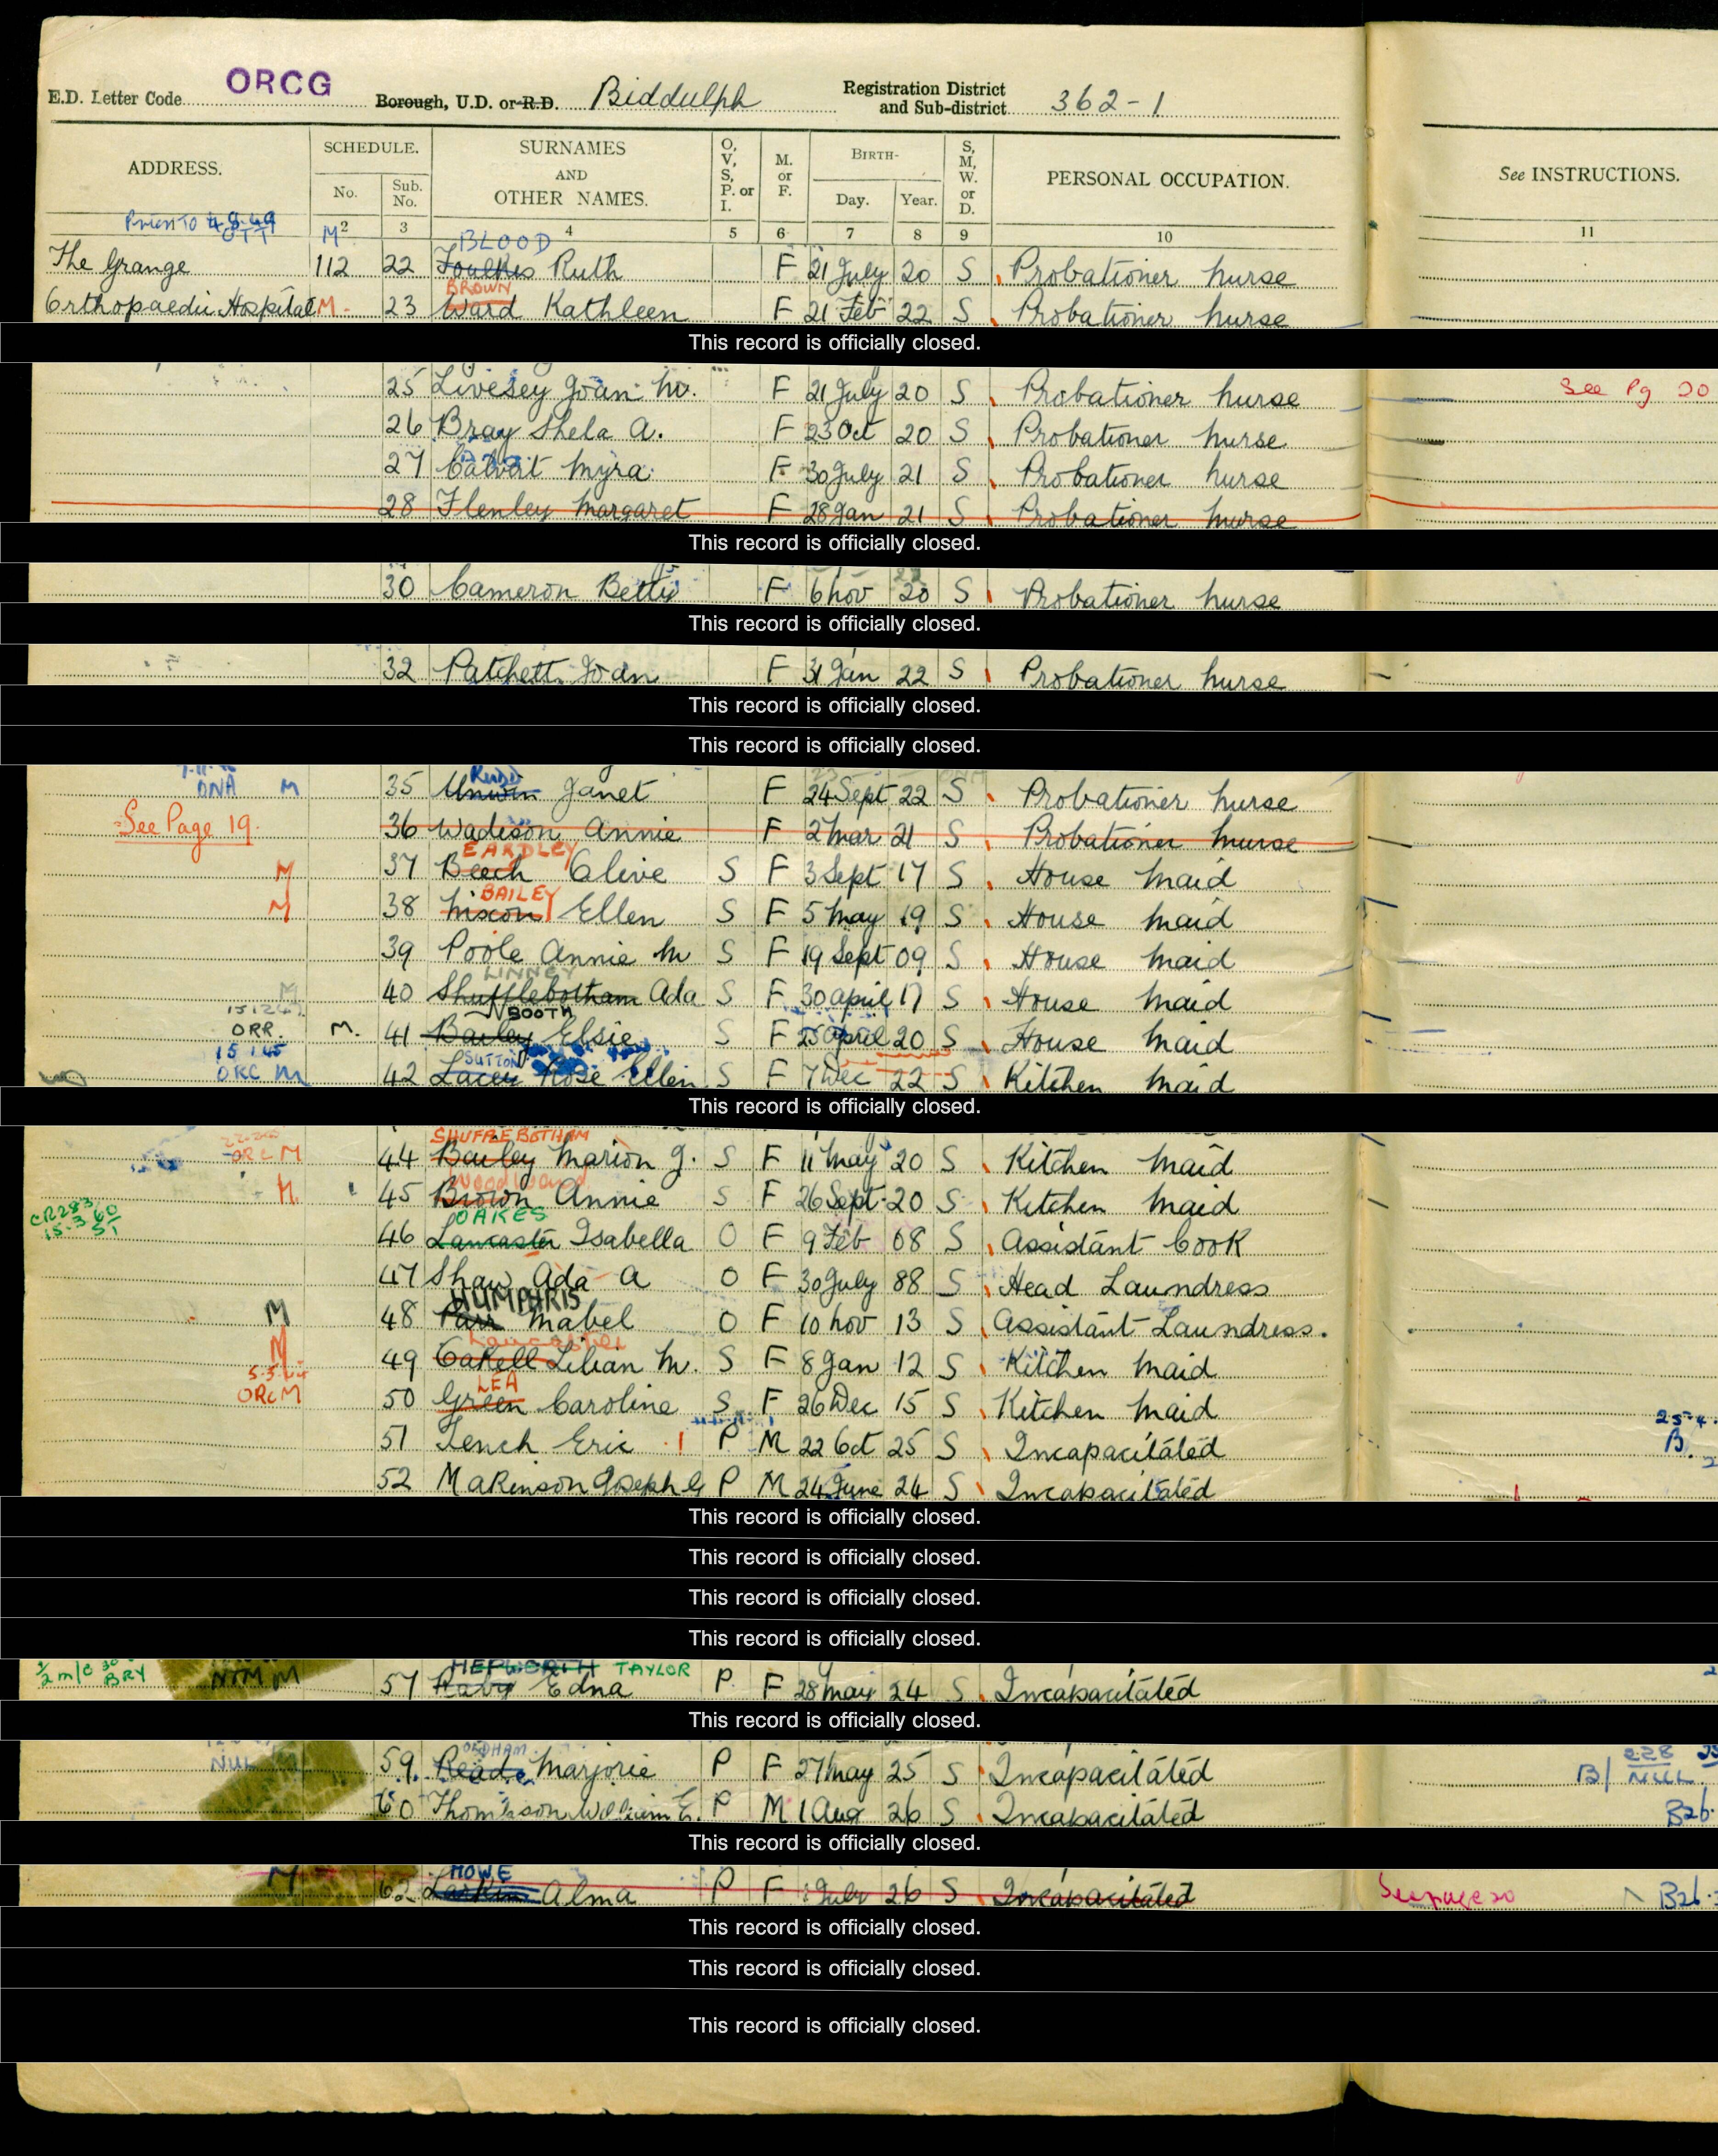 E.D. Letter Code ORCG Borough, U.D. or R.D. Biddulph Registration District and Sub-district 362-1
ADDRESS. SCHEDULE. No. Sub. No. SURNAMES AND OTHER NAMES. O, V, S, P. or I. M. or F. BIRTH- Day. Year. S, M, W. or D. PERSONAL OCCUPATION. See INSTRUCTIONS.
2 3 4 5 6 7 8 9 10 11
M BLOOD
The Grange 112 22 Foulkes Ruth F 21 July 20 S Probationer nurse
BROWN
Orthopaedic Hospital M 23 Ward Kathleen F 21 Feb 22 S Probationer nurse
This record is officially closed.
25 Livesey Joan M. F 21 July 20 S Probationer nurse See Pg 20
26 Bray Shela A. F 23 Oct 20 S Probationer nurse
27 Calvert Myra F 30 July 21 S Probationer nurse
28 Flenley Margaret F 28 Jan 21 S Probationer nurse
This record is officially closed.
30 Cameron Bettie F 6 Nov 20 S Probationer nurse
This record is officially closed.
32 Patchett Joan F 31 Jan 22 S Probationer nurse
This record is officially closed.
This record is officially closed.
DNA M 35 Unwin Janet F 24 Sept 22 S Probationer nurse
See Page 19. 36 Wadeson Annie F 2 Mar 21 S Probationer nurse
EARDLEY
M 37 Beech Olive S F 3 Sept 17 S House Maid
BAILEY
M 38 Nixon Ellen S F 5 May 19 S House Maid
39 Poole Annie M S F 19 Sept 09 S House Maid
LINNEY
M 40 Shufflebotham Ada S F 30 April 17 S House Maid
BOOTH
ORR. M. 41 Bailey Elsie S F 25 April 20 S House Maid
15 1 45 SUTTON
ORC M 42 Lacey Rose Ellen S F 7 Dec 22 S Kitchen Maid
This record is officially closed.
SHUFFLEBOTHAM
ORC M 44 Bailey Marion J. S F 11 May 20 S Kitchen Maid
Woodward
M 45 Brown Annie S F 26 Sept 20 S Kitchen Maid
OAKES
46 Lancaster Isabella O F 9 Feb 08 S Assistant Cook
47 Shaw Ada A O F 30 July 88 S Head Laundress
HUMPHRIS
M 48 Parr Mabel O F 10 Nov 13 S Assistant Laundress.
Lancaster
M 49 Oakell Lilian M. S F 8 Jan 12 S Kitchen Maid
LEA
ORC M 50 Green Caroline S F 26 Dec 15 S Kitchen Maid
51 Tench Eric P M 22 Oct 25 S Incapacitated
52 Makinson Joseph G P M 24 June 24 S Incapacitated
This record is officially closed.
This record is officially closed.
This record is officially closed.
This record is officially closed.
HEPWORTH TAYLOR
BRY M 57 Raby Edna P F 28 May 24 S Incapacitated
This record is officially closed.
OLDHAM
NUL M 59 Reade Marjorie P F 27 May 25 S Incapacitated B/ NUL
60 Thompson William E. P M 1 Aug 26 S Incapacitated B26.
This record is officially closed.
HOWE
M 62 Larkin Alma P F July 26 S Incapacitated See page 20 B26.
This record is officially closed.
This record is officially closed.
This record is officially closed.